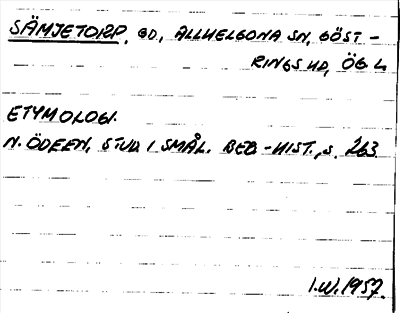 SÄMJETORP, GD., ALLHELGONA SN, GÖST-
RINGS HD, ÖG L
ETYMOLOGI.
N. ÖDEEN, STUD I SMÅL. BEB-HIST., S. 263
I.W. 1957.